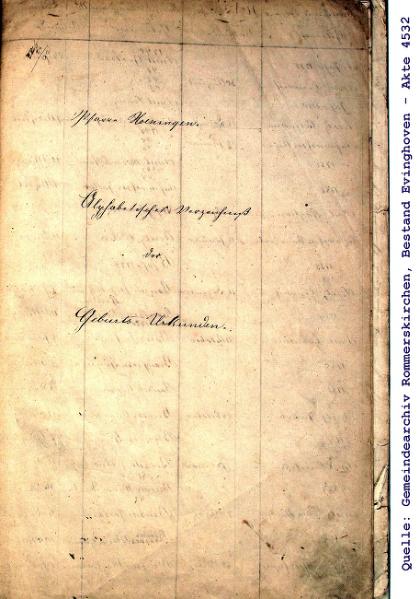 Pfarre Hoeningen.
Alphabetisches Verzeichniß
der
Geburts-Urkunden.
Quelle: Gemeindearchiv Rommerskirchen, Bestand Evinghoven - Akte 4532